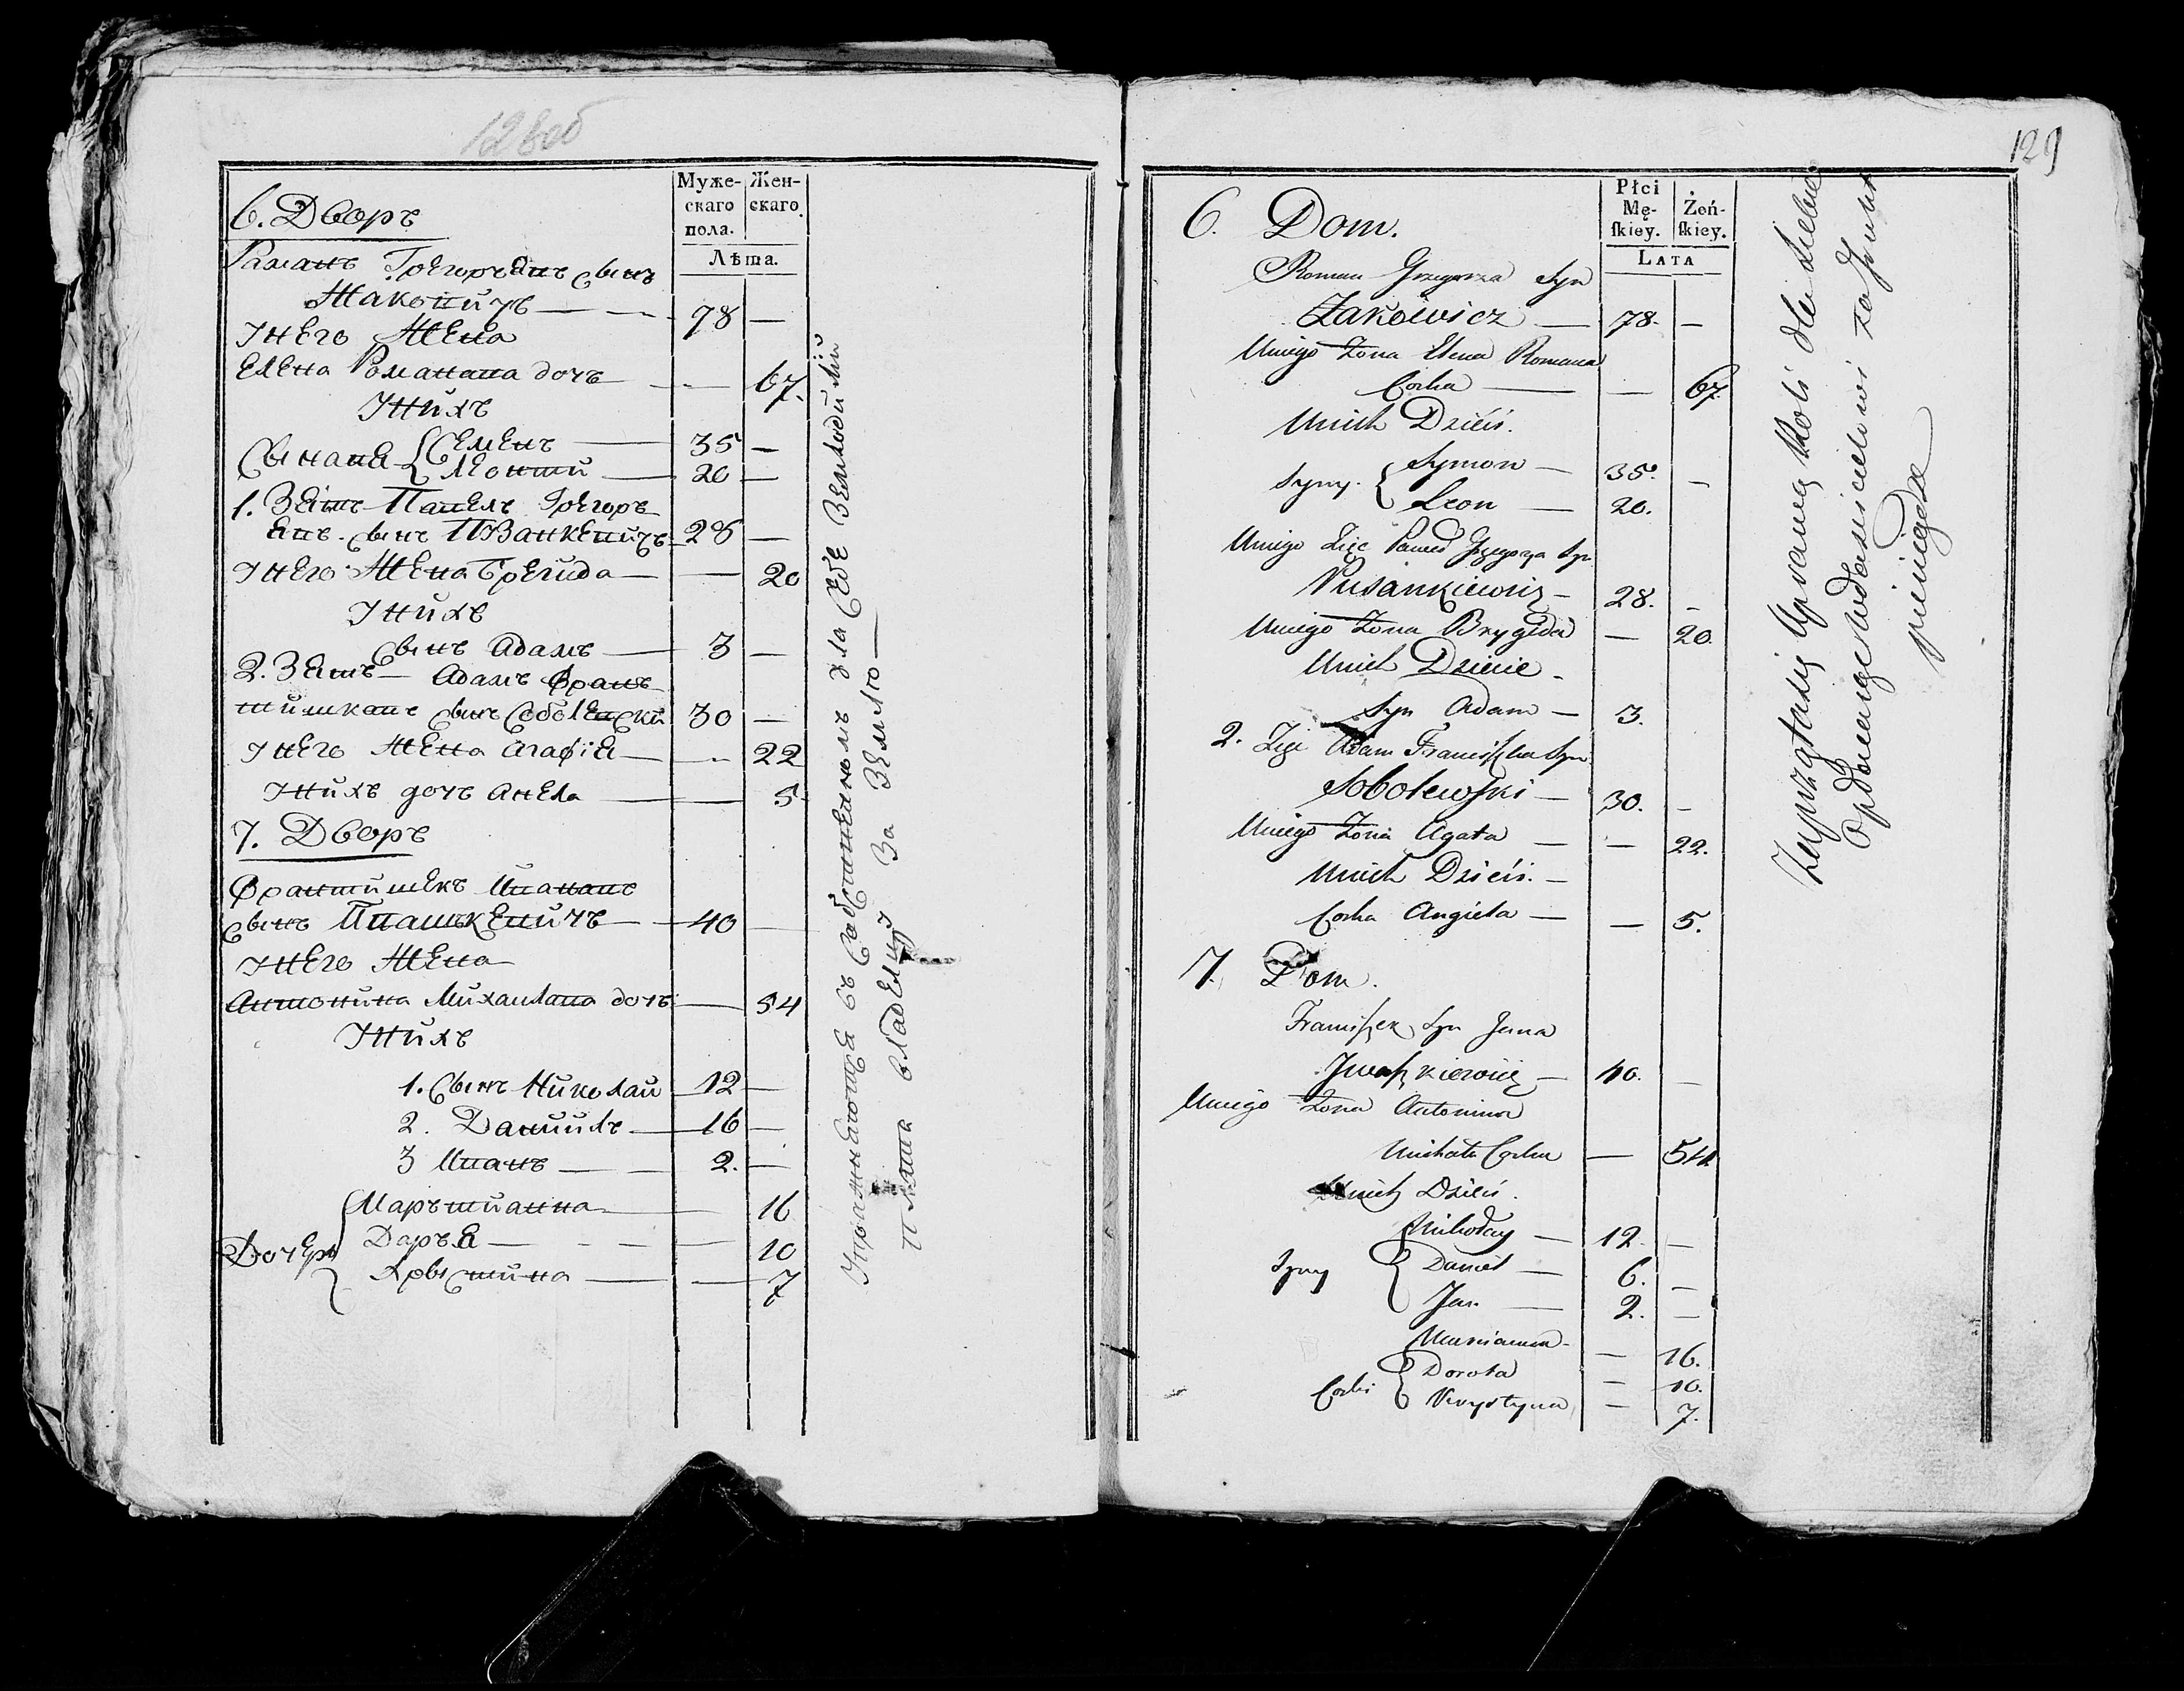 128об
Муже-
скаго
пола.
Жен-
скаго
Лѣта.
6. Дворъ
Раманъ Грегоръевъ сынъ
Жаковичъ — 78 —
У Него Жена
Елена Романава дочъ — 67.
У Нихъ
Сынавя { Семенъ — 35 —
Леонти — 20 —
1. Зять Павелъ Грегоръ
евъ сынъ 28 —
У Него Жена Брегида — 20
У Нихъ
Сынъ Адамъ — 3 —
2. Зять — Адамъ Франъ
тишкавъ сынъ Соболевски 30 —
У Него Жена Агафія — 22
У Нихъ дочъ Анеля — 5
7. Дворъ
Франтишекъ Иванавъ
сынъ Ивашкевичъ — 40 —
У Него Жена
Антонина Михаилава дочъ — 54
У Нихъ
1. Сынъ Николай 12 —
2. Даниилъ — 16 —
3 Иванъ — 2. —
Дочери { Марътианна — 16
Даръя — 10
Крыстина — 7
Упражняются въ для себе
Плата владелцу За Землю —
129
Płci
Mę-
skiey.
Żeń-
skiey.
LATA
6. Dom.
Roman Grzegorza Syn
Żakowicz — 78. —
U niego Żona Elena Romana
Corka — — 67.
U nich Dzieci.
Syny. { Symon — 35. —
Leon — 20.
U niego Zięc Paweł Grzegorza Syn
28. —
U niego Żona Brygida — 20.
U nich Dziecie —
Syn Adam — 3.
2. Zięc Adam Franciszka Syn
Sobolewski — 30. —
U niego Żona Agata — — 22.
U nich Dzieci. —
Corka Angiela — — 5.
7. Dom.
Franciszek Syn Jana
Iwaszkiewicz — 40. —
U niego Żona Antonina
Michała Corka — 54.
U nich Dzieci.
Syny { Mikołay — 12. —
Daniel — 6. —
Jan — 2. —
Corki { Maryanna — — 16.
Dorota — 10.
Krystyna — 7.
Zaprzątaią Uprawą Roli dla siebie
Opłacaiąc właścicielowi za Grunt
pieniądze